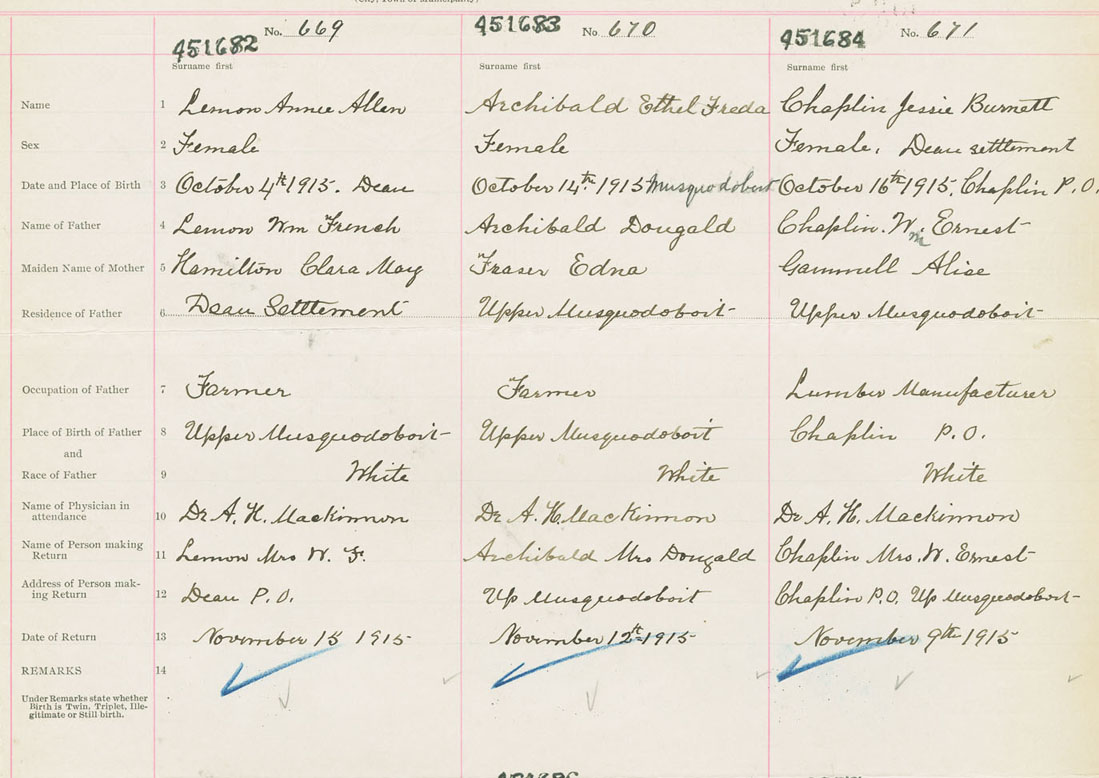 451682 No. 669 451683 No 670 451684 No. 671
Surname first Surname first Surname first
Name 1 Lemon Annie Allen Archibald Ethel Freda Chaplin Jessie Burnett
Sex 2 Female Female Female. Dean settlement
Date and Place of Birth 3 October 4th 1915. Dean October 14th 1915 Musquodoboit October 16th 1915. Chaplin P.O.
Name of Father 4 Lemon Wm French Archibald Dougald Chaplin. Wm Ernest
Maiden Name of Mother 5 Hamilton Clara May Fraser Edna Gammell Alise
Residence of Father 6 Dean Settlement Upper Musquodoboit Upper Musquodoboit
Occupation of Father 7 Farmer Farmer Lumber Manufacturer
Place of Birth of Father 8 Upper Musquodoboit Upper Musquodoboit Chaplin P.O.
and
Race of Father 9 White White White
Name of Physician in
attendance 10 Dr A. H. Mackinnon Dr A. H. MacKinnon Dr A. H. Mackinnon
Name of Person making
Return 11 Lemon Mrs W. F. Archibald Mrs Dougald Chaplin Mrs. W. Ernest
Address of Person mak-
ing Return 12 Dean P.O. Up Musquodoboit Chaplin P.O. Up Musquodoboit
Date of Return 13 November 15 1915 November 12th 1915 November 9th 1915
REMARKS 14
Under Remarks state whether
Birth is Twin, Triplet, Ille-
gitimate or Still birth.